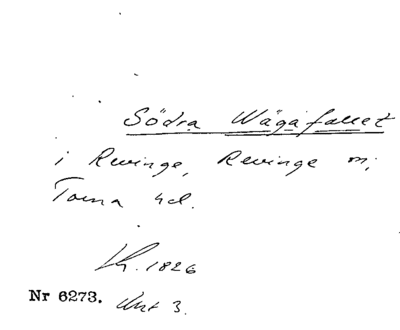 Södra Wägafallet
i Revinge, Revinge m;
Torna hd.
1826
Nr 6273. Akt 3.